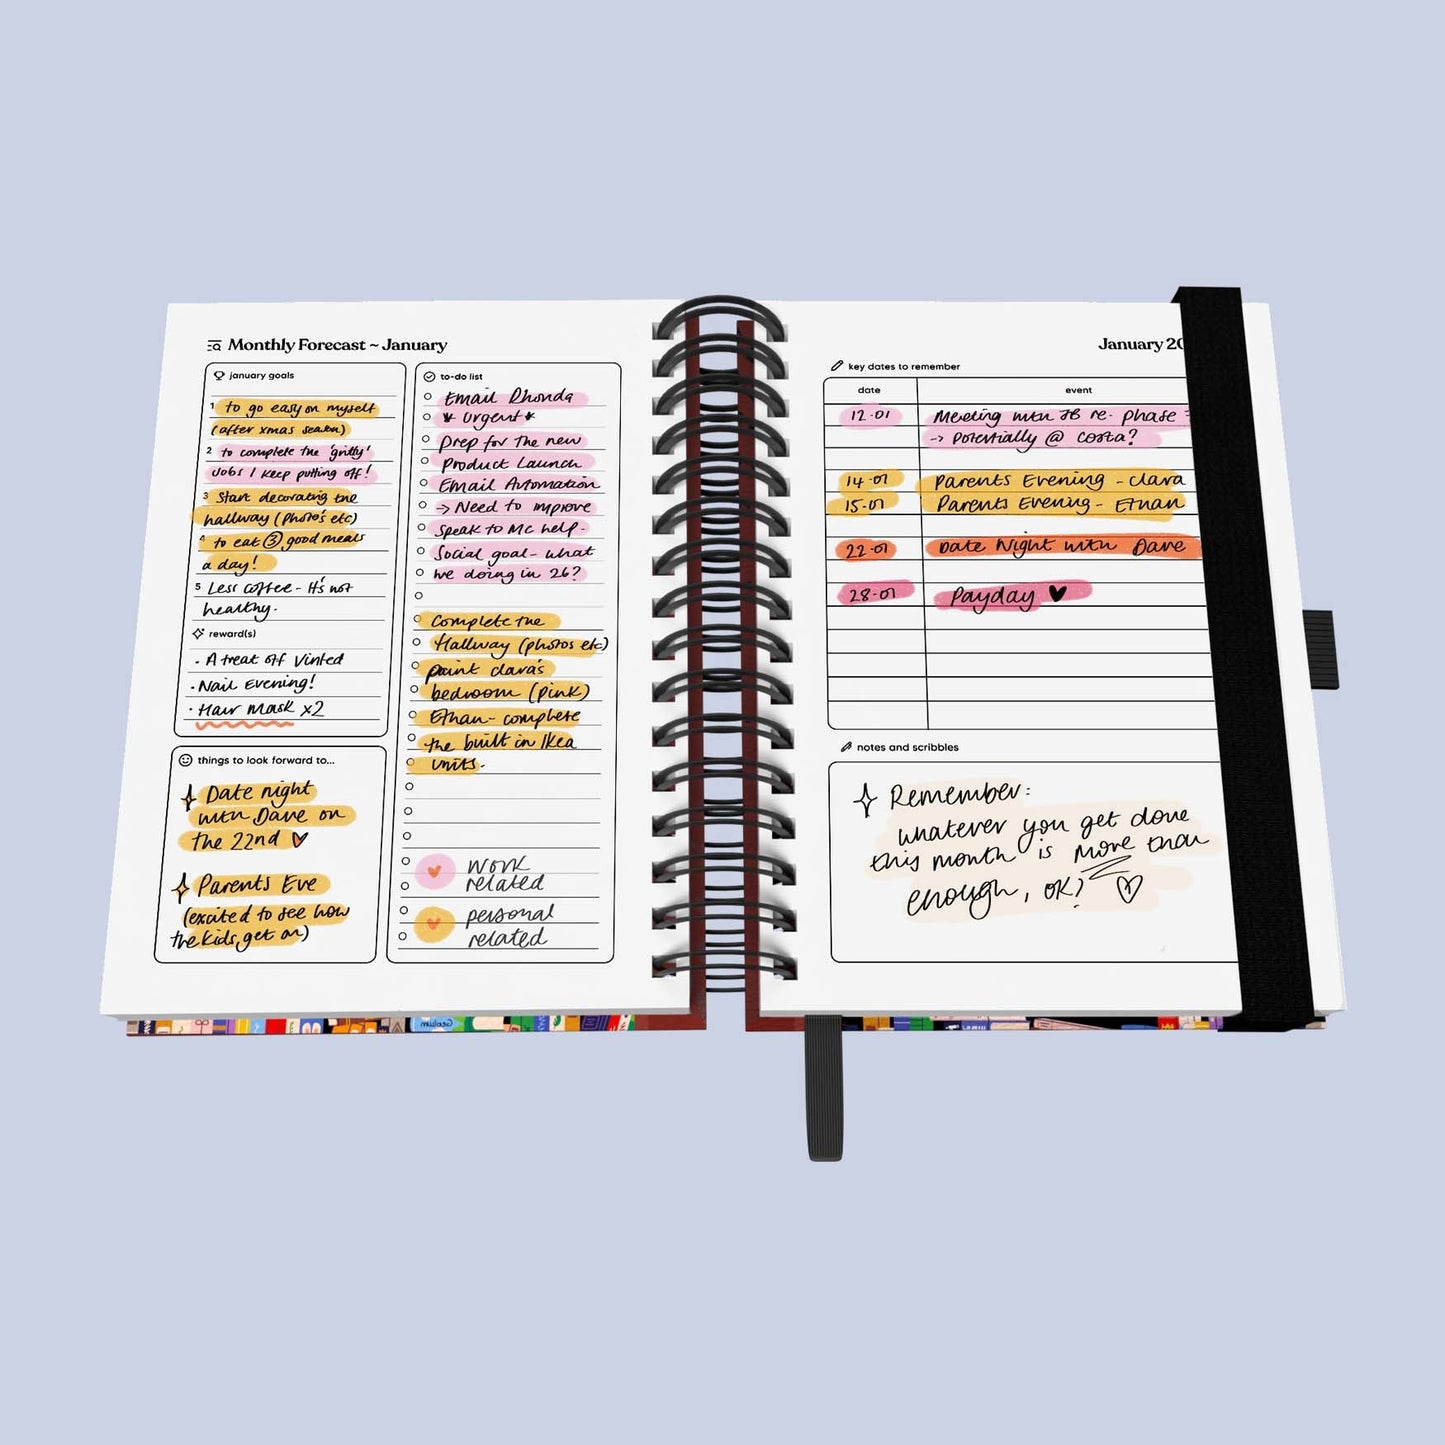 Monthly Forecast ~ January
january goals
1 to go easy on myself
(after xmas season)
2 to complete the 'gritty'
Jobs I keep putting off!
3 Start decorating the
hallway (photo's etc)
4 to eat 3 good meals
a day!
5 Less coffee - It's not
healthy.
reward(s)
· A treat off Vinted
· Nail Evening!
· Hair Mask x2
things to look forward to...
Date night
with Dave on
the 22nd
Parents Eve
(excited to see how
the kids get on)
to-do list
Email Rhonda
* Urgent *
Prep for the new
Product Launch
Email Automation
-> Need to improve
Speak to MC help -
Social goal - what
we doing in 26?
Complete the
Hallway (photos etc)
paint clara's
bedroom (pink)
Ethan - complete
the built in Ikea
units.
work
related
personal
related
January 20
key dates to remember
date event
12-01 Meeting with JB re. phase
-> Potentially @ Costa?
14-01 Parents Evening - Clara
15-01 Parents Evening - Ethan
22-01 Date Night with Dave
28-01 Payday ♥
notes and scribbles
Remember:
whatever you get done
this month is more than
enough, ok?